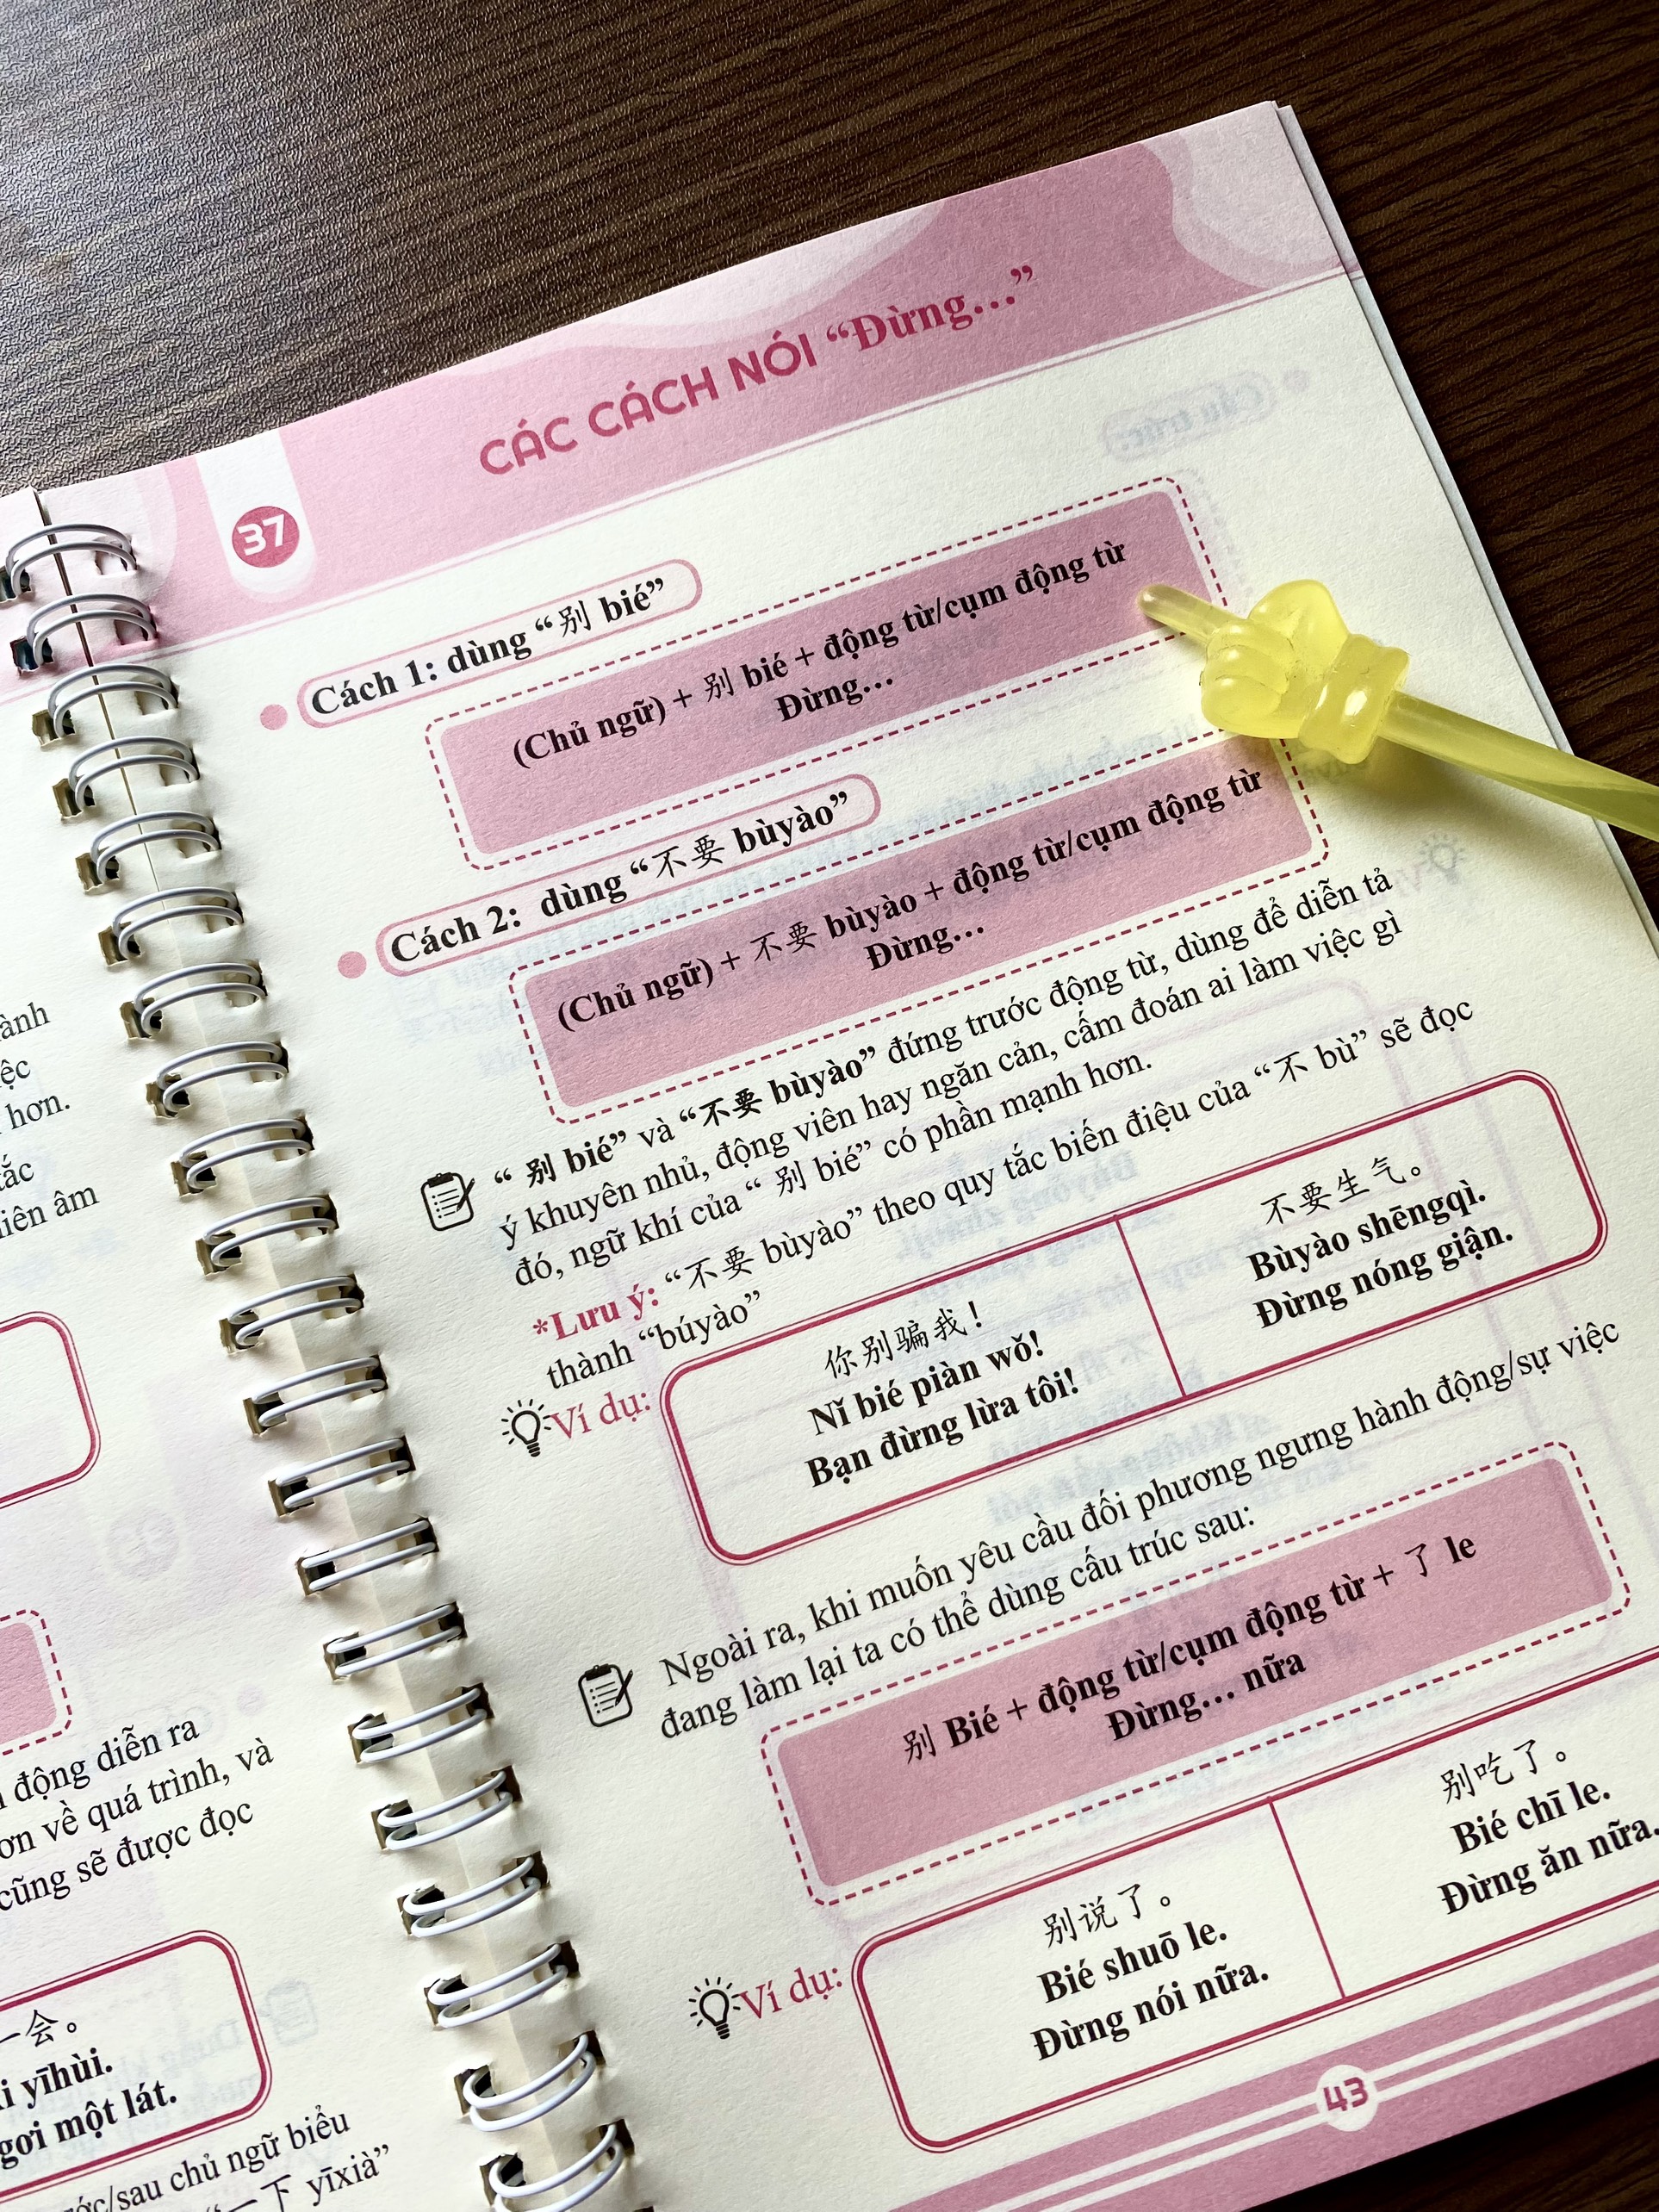 ành
ệc
hơn.
tắc
iên âm
động diễn ra
ơn về quá trình, và
cũng sẽ được đọc
一会。
i yīhùi.
gơi một lát.
ớc/sau chủ ngữ biểu
“一下 yīxià”
37
CÁC CÁCH NÓI “Đừng...”
Cách 1: dùng “别 bié”
(Chủ ngữ) + 别 bié + động từ/cụm động từ
Đừng...
Cách 2: dùng “不要 bùyào”
(Chủ ngữ) + 不要 bùyào + động từ/cụm động từ
Đừng...
“ 别 bié” và “不要 bùyào” đứng trước động từ, dùng để diễn tả
ý khuyên nhủ, động viên hay ngăn cản, cấm đoán ai làm việc gì
đó, ngữ khí của “ 别 bié” có phần mạnh hơn.
*Lưu ý: “不要 bùyào” theo quy tắc biến điệu của “不 bù” sẽ đọc
thành “búyào”
Ví dụ:
你别骗我！
Nǐ bié piàn wǒ!
Bạn đừng lừa tôi!
不要生气。
Bùyào shēngqì.
Đừng nóng giận.
Ngoài ra, khi muốn yêu cầu đối phương ngưng hành động/sự việc
đang làm lại ta có thể dùng cấu trúc sau:
别 Bié + động từ/cụm động từ + 了 le
Đừng... nữa
Ví dụ:
别说了。
Bié shuō le.
Đừng nói nữa.
别吃了。
Bié chī le.
Đừng ăn nữa.
43